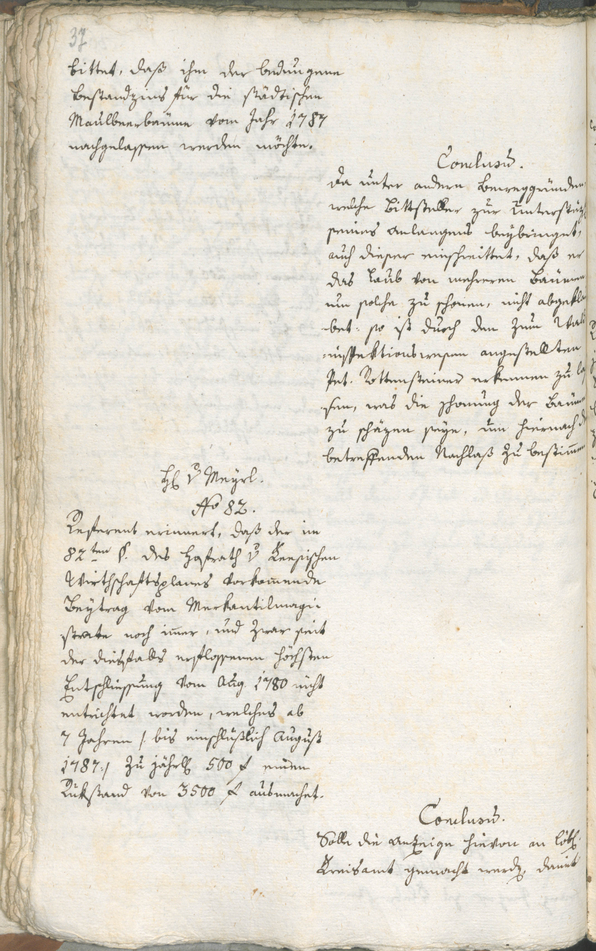 37
bittet, daß ihm der bedungene
Bestandzins für die städtischen
Maulbeerbäume vom Jahr 1787
nachgelassen werden möchte.
Conclusum.
Da unter andern Beweggründen
welche Bittsteller zur Unterstüz
seines Anlangens beybringet,
auch dieser einschreittet, daß er
das Laub von mehreren Bäumen
um solche zu schonen, nicht
bet: so ist durch den zum
inspektionswesen angestellten
Pet. Rottensteiner erkennen zu la
ssen, was die Schonung der Bäume
zu schäzen seye, um hiernach d
betreffenden Nachlaß zu bestimen
H. v Meyrl.
No 82.
Referent erinnert, daß der im
82ten §. des Hofrath v Ceesischen
Wirthschaftsplanes vorkomende
Beytrag vom Merkantilmagi
strate noch imer, und zwar seit
der diesfalls erflossenen höchsten
Entschliessung vom Aug 1780 nicht
entrichtet worden, welches ab
7 Jahren /: bis einschlüßlich August
1787 :/ zu jährl. 500 f einen
Rükstand von 3500 f ausmachet.
Conclusum.
Solle die Anzeige hievon an löbl.
Kreisamt gemacht werden, damit